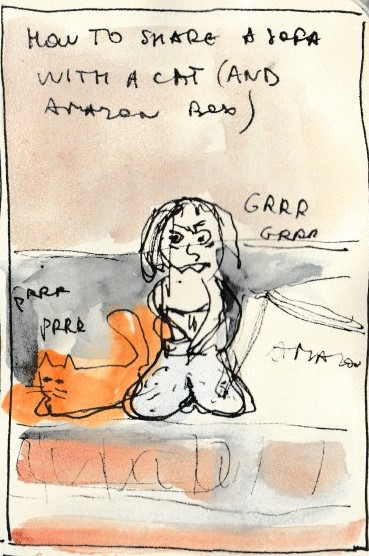 HOW TO SHARE A SOFA
WITH A CAT (AND
AMAZON BOX)
GRRR
GRRR
PRRR
PRRR
AMAZON